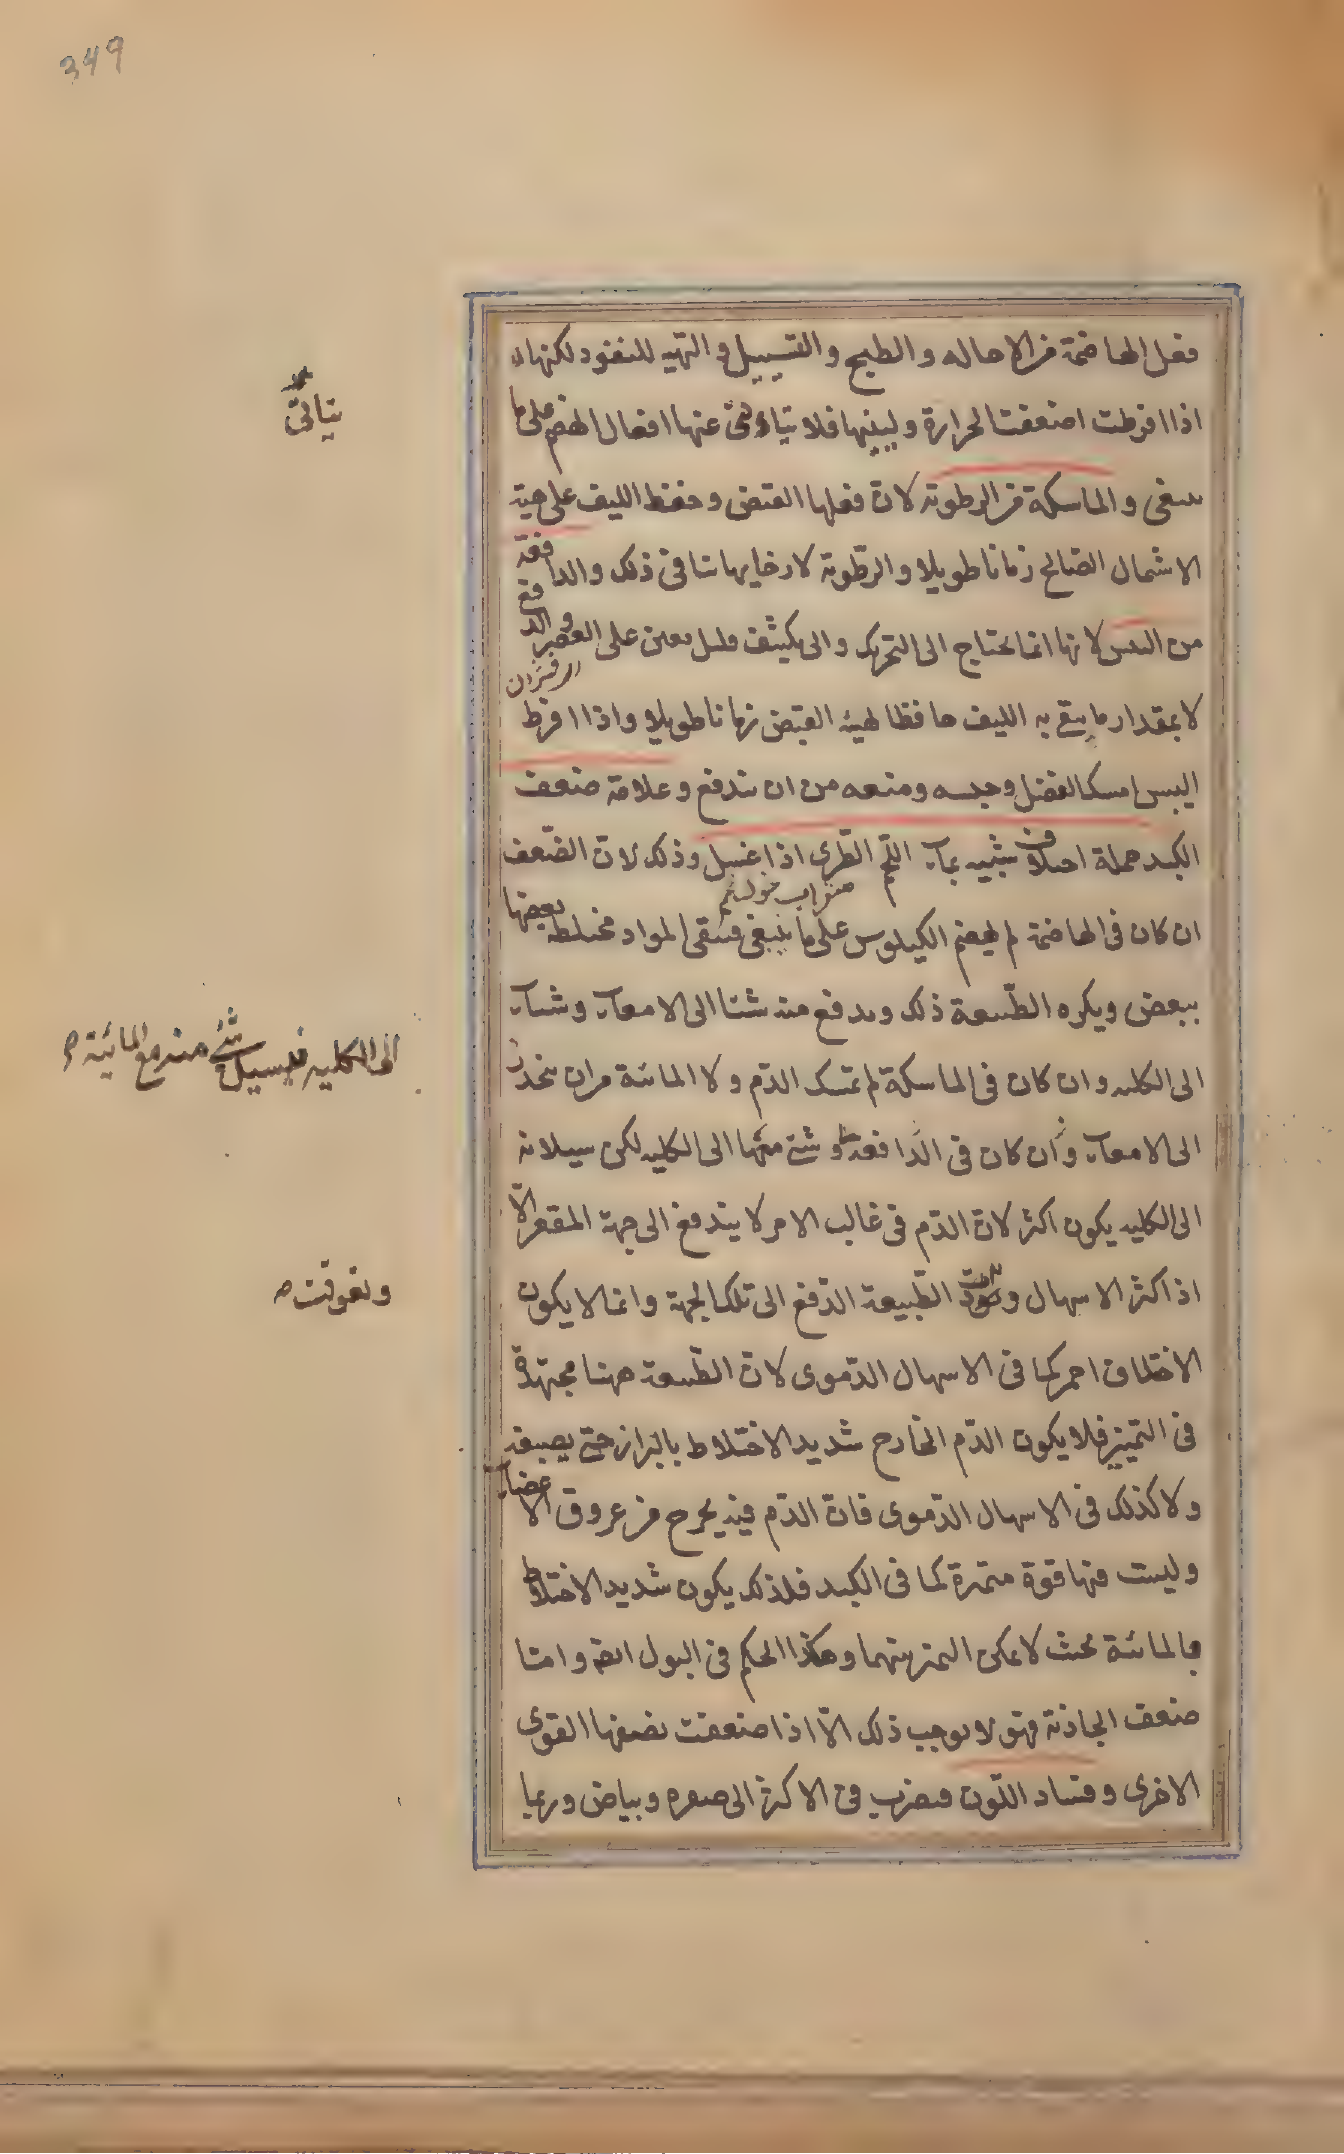 349
فعل الهاضمة من الاحاله و الطبخ و التسييل و التهيه للنفوذ لكنها
اذا افرطت اضعفت الحرارة و لينها فلا يتاءتى عنها افعال الهضم على ما
ينبغى و الماسكة من الرطوبة لان فعلها القبض و حفظ الليف على هيئة
الاشتمال الصالح زمانا طويلا و الرطوبة لارخايها تنافى ذلك و الدافعة
من اليبس لانها انما يحتاج الى التحريك و الى تكثيف قليل معين على العصر و الدفع
لا بمقدار ما يبقى به الليف حافظا لهيئة القبض زمانا طويلا و اذا افرط
اليبس امسك الفضل و حبسه و منعه من ان يندفع و علامة ضعف
الكبد جملة اختلاف شبيه بماء اللحم الطرى اذا غسل و ذلك لان الضعف
ان كان فى الهاضمة لم يهضم الكيلوس على ما ينبغى فتبقى المواد مختلطة بعضها
ببعض و يكره الطبيعة ذلك و يدفع منه شيئا الى الامعاء و شيئا
الى الكليه و ان كان فى الماسكة لم تمسك الدم و لا المائية من ان ينحدر
الى الامعاء و ان كان فى الدافعة و شئ منها الى الكليه لكن سيلانه
الى الكليه يكون اكثر لان الدم فى غالب الامر لا يندفع الى جهة المقعر الا
اذا كثر الاسهال و الطبيعة الدفع الى تلك الجهة و انما لا يكون
الاختلاف احمر كما فى الاسهال الدموى لان الطبيعة ههنا مجتهدة
فى التمييز فلا يكون الدم الخارج شديد الاختلاط بالبراز حتى يصبغه
و لا كذلك فى الاسهال الدموى فان الدم فيه يخرج من عروق الاعضاء
و ليست فيها قوة مميزة كما فى الكبد فلذلك يكون شديد الاختلاط
بالمائية بحيث لا يمكن التميز بينهما و هكذا الحكم فى البول ايضا و اما
ضعف الجاذبة فهو لا يوجب ذلك الا اذا ضعفت بضعفها القوى
الاخرى و فساد اللون فيضرب فى الاكثر الى صفره و بياض و ربما
يتاتى
الى الكليه فيسيل شئ منه مع المائية
و تعوقت